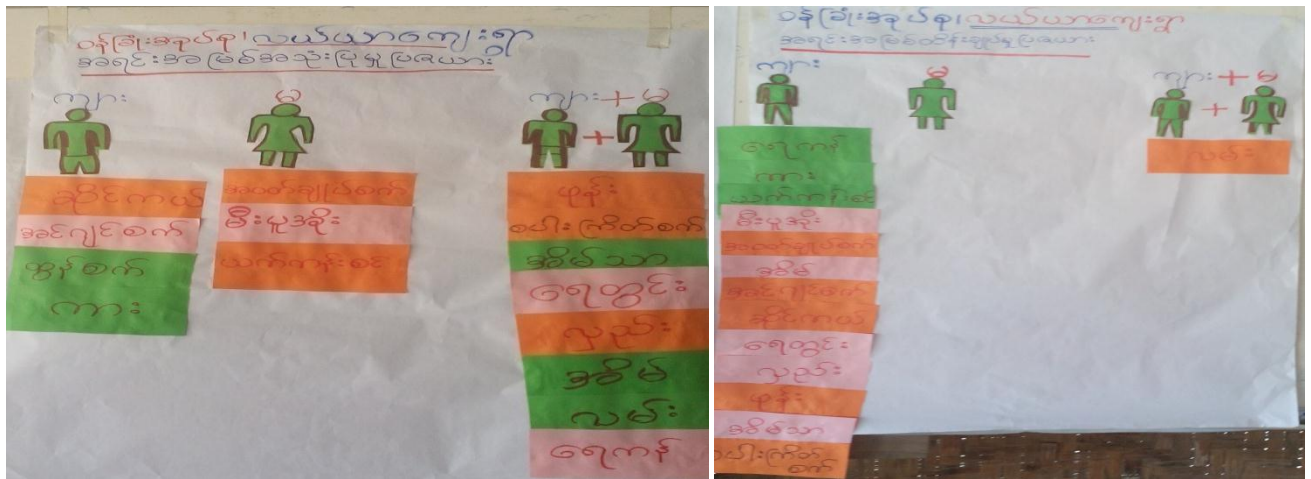 ဝန်ခြုံးအုပ်စု၊ လယ်ယာကျေးရွာ
အရင်းအမြစ်အသုံးပြုမှုပြဇယား
ကျား
မ
ကျား + မ
+
ဆိုင်ကယ်
အင်ဂျင်စက်
ထွန်စက်
ကား
အဝတ်ချုပ်စက်
မီးပူအိုး
ယက်ကန်းစင်
ဖုန်း
စပါးကြိတ်စက်
အိမ်သာ
ရေတွင်း
လှည်း
အိမ်
လမ်း
ရေကန်
ဝန်ခြုံးအုပ်စု၊ လယ်ယာကျေးရွာ
အရင်းအမြစ်ထိန်းချုပ်မှုပြဇယား
ကျား
မ
ကျား + မ
+
ရေကန်
ကား
ယက်ကန်းစင်
မီးပူအိုး
အဝတ်ချုပ်စက်
အိမ်
အင်ဂျင်စက်
ဆိုင်ကယ်
ရေတွင်း
လှည်း
ဖုန်း
အိမ်သာ
စပါးကြိတ်
စက်
လမ်း